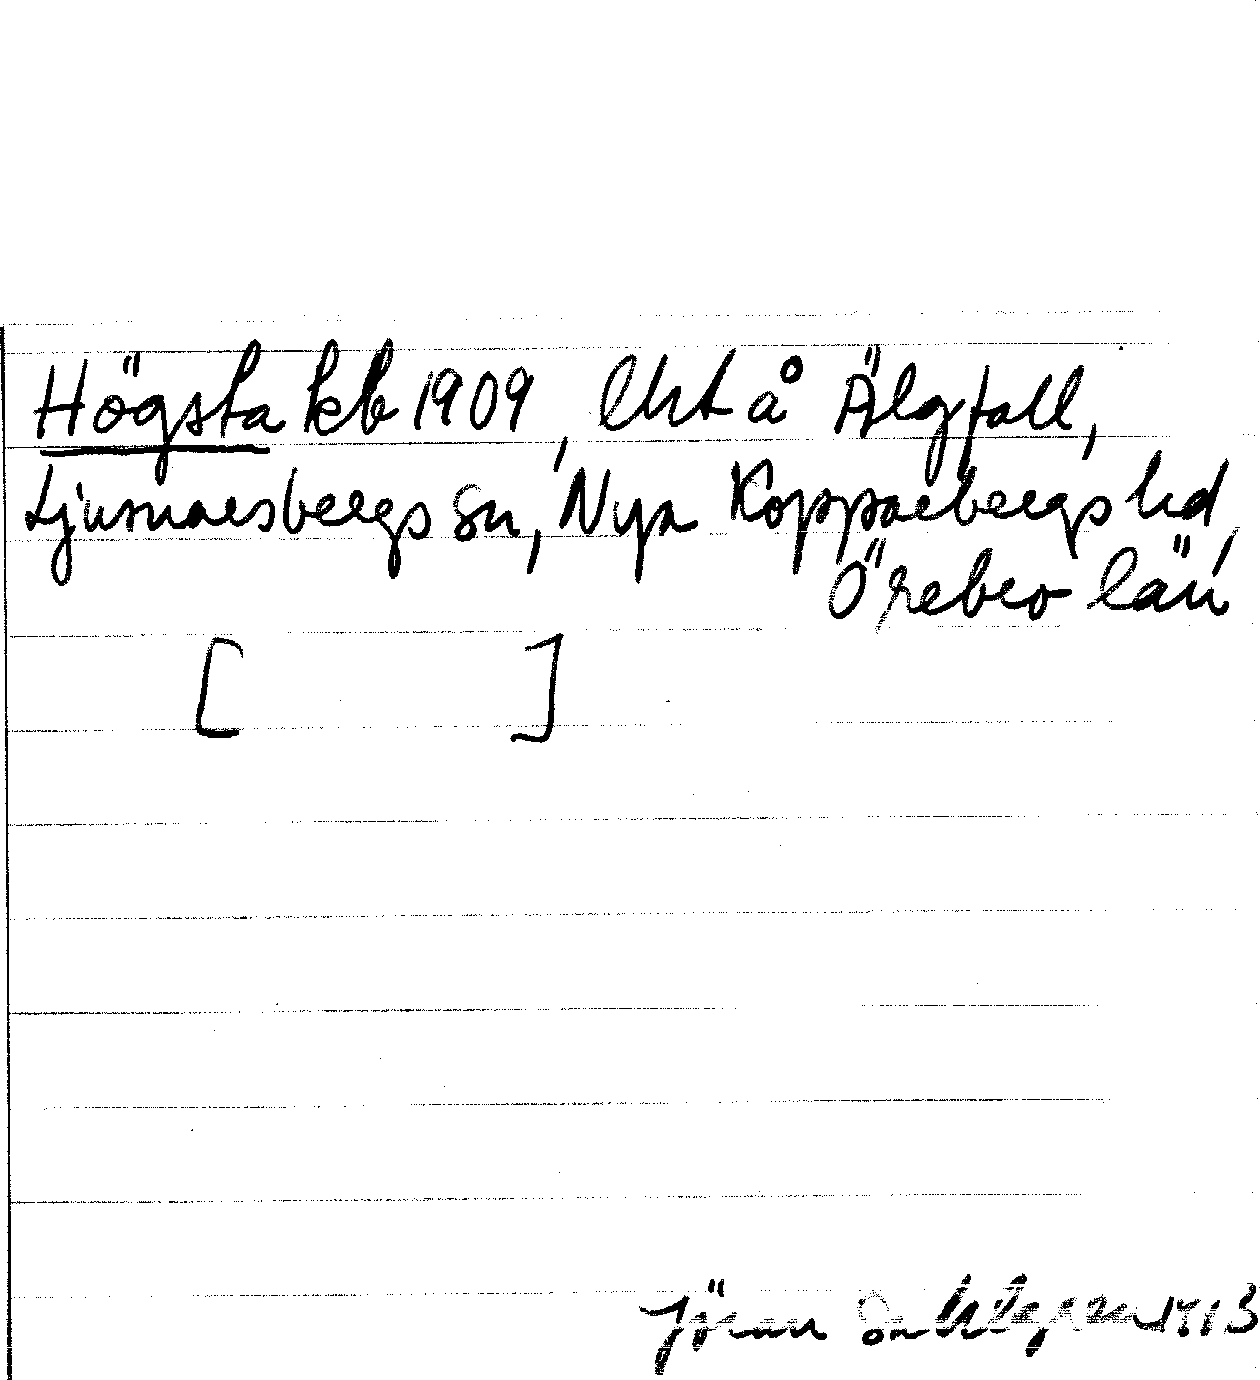 Högsta kb 1909, lht å Älgfall,
Ljusnarsbergs sn, Nya Kopparbergs hd,
Örebro län
[ ]
Jöran Sahlgren 1913